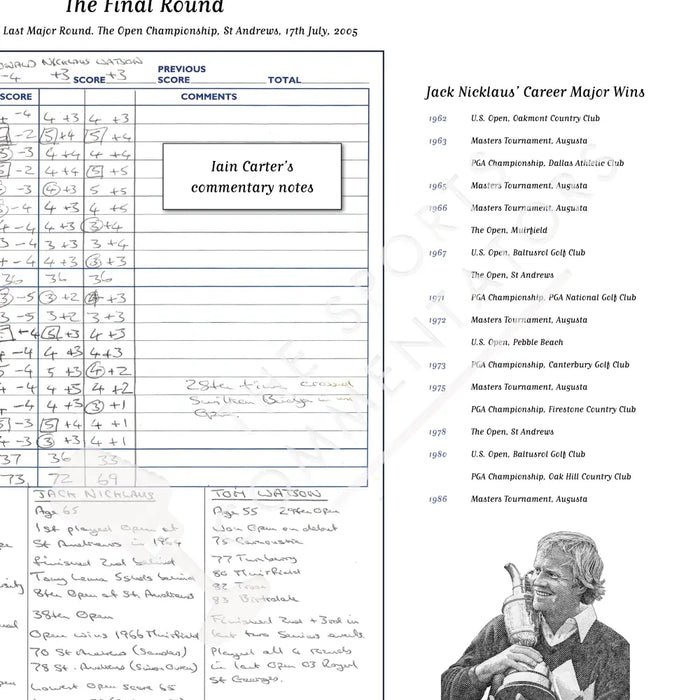 The Final Round
Last Major Round. The Open Championship, St Andrews, 17th July, 2005
NICKLAUS WATSON
-4 +3 SCORE +3
PREVIOUS
SCORE TOTAL
SCORE COMMENTS
-4 4 +3 4 +3
-2 5 +4 5 +4
-3 4 +4 4 +4
-2 4 +4 5 +5
-3 4 +3 5 +5
-4 4 +3 4 +5
-4 4 +3 3 +4
-4 3 +3 3 +4
-4 4 +3 3 +3
36 36 36
-5 3 +2 4 +3
-5 3 +2 3 +3
-4 5 +3 4 +3
-4 4 +3 4 +3
-4 5 +3 4 +2
-4 4 +3 4 +2
-4 4 +3 3 +1
-3 5 +4 4 +1
-3 3 +3 4 +1
37 36 33
73 72 69
Iain Carter's
commentary notes
28th time crossed
Swilken Bridge in an
Open.
JACK NICKLAUS
Age 65
1st played Open at
St Andrews in 1964
finished 2nd behind
Tony Lema 5 shots behind
8th Open at St. Andrews
38th Open
Open wins 1966 Muirfield
70 St Andrews (Sanders)
78 St. Andrews (Simon Owen)
Lowest Open score 65
TOM WATSON
Age 55 29th Open
Won Open on debut
75 Carnoustie
77 Turnberry
80 Muirfield
82 Troon
83 Birkdale
Finished 2nd + 3rd in
last two Seniors events
Played all 4 rounds
in last Open 03 Royal
St Georges.
Jack Nicklaus' Career Major Wins
1962 U.S. Open, Oakmont Country Club
1963 Masters Tournament, Augusta
PGA Championship, Dallas Athletic Club
1965 Masters Tournament, Augusta
1966 Masters Tournament, Augusta
The Open, Muirfield
1967 U.S. Open, Baltusrol Golf Club
The Open, St Andrews
1971 PGA Championship, PGA National Golf Club
1972 Masters Tournament, Augusta
U.S. Open, Pebble Beach
1973 PGA Championship, Canterbury Golf Club
1975 Masters Tournament, Augusta
PGA Championship, Firestone Country Club
1978 The Open, St Andrews
1980 U.S. Open, Baltusrol Golf Club
PGA Championship, Oak Hill Country Club
1986 Masters Tournament, Augusta
THE SPORTS
COMMENTATORS